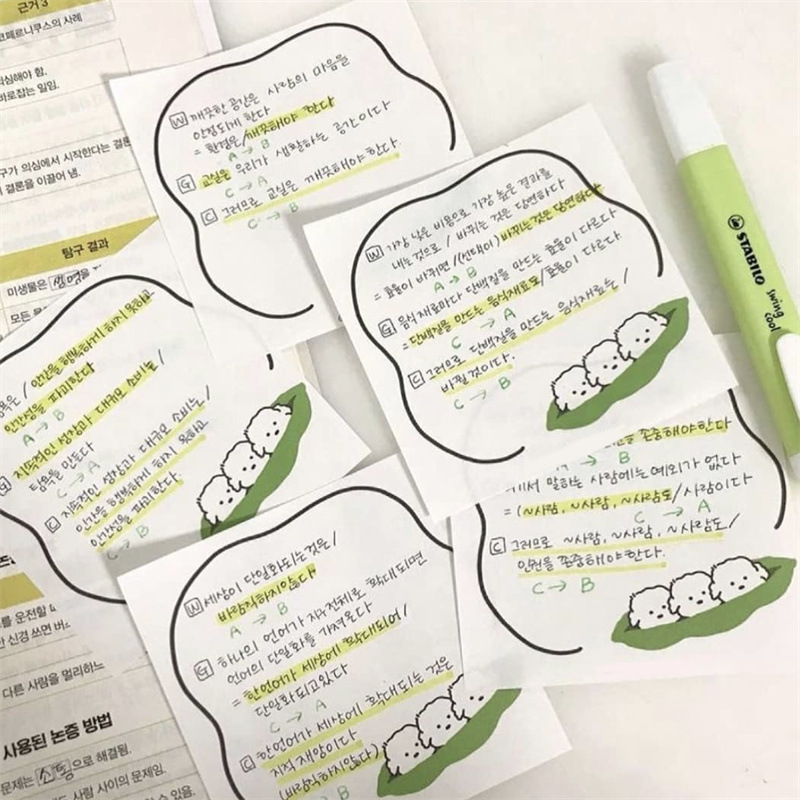 근거 3
코페르니쿠스의 사례
의심해야 함.
바로잡는 일임.
구가 의심에서 시작한다는 결론
결론을 이끌어 냄.
탐구 결과
미생물은
모든
W 깨끗한 공간은 사람의 마음을
안정되게 한다
= 환경은/깨끗해야 한다
A → B
G 교실은 우리가 생활하는 공간이다
C → A
C 그러므로 교실은 깨끗해야 한다.
C → B
W 가장 낮은 비용으로 가장 높은 결과를
내는 것으로 / 바뀌는 것은 당연하다
= 효율이 바뀌면/(선택이) 바뀌는 것은 당연하다
A → B
G 음식재료마다 단백질을 만드는 효율이 다르다
= 단백질을 만드는 음식재료도/효율이 다르다
C → A
C 그러므로 단백질을 만드는 음식재료는/
바뀔것이다.
C → B
STABILO
swing
cool
탐욕은 / 인간을 행복하게 하지 못하고
인간성을 파괴한다
A → B
G 지속적인 성장과 대규모 소비는/
탐욕을 만든다
C → A
C 지속적인 성장과 대규모 소비는/
인간을 행복하게 하지 못하고
인간성을 파괴한다.
C → B
존중해야한다
→ B
에서 말하는 사람에는 예외가 없다
= (~사람, ~사람, ~사람도/사람이다
C → A
C 그러므로 ~사람, ~사람, ~사람도/
인권을 존중해야한다.
C → B
W 세상이 단일화되는것은/
바람직하지않다
A → B
G 하나의 언어가 지구전체로 확대되면
언어의 단일화를 가져온다
= 한언어가 세상에 확대되어/
단일화되고있다
C → A
C 한언어가 세상에 확대되는 것은
지적 재앙이다
(바람직하지않다)
→ B
를 운전할
한 신경 쓰면
다른 사람을 멀리하느
사용된 논증 방법
문제는 소통으로 해결됨.
도 사람 사이의 문제임.
수 있음.